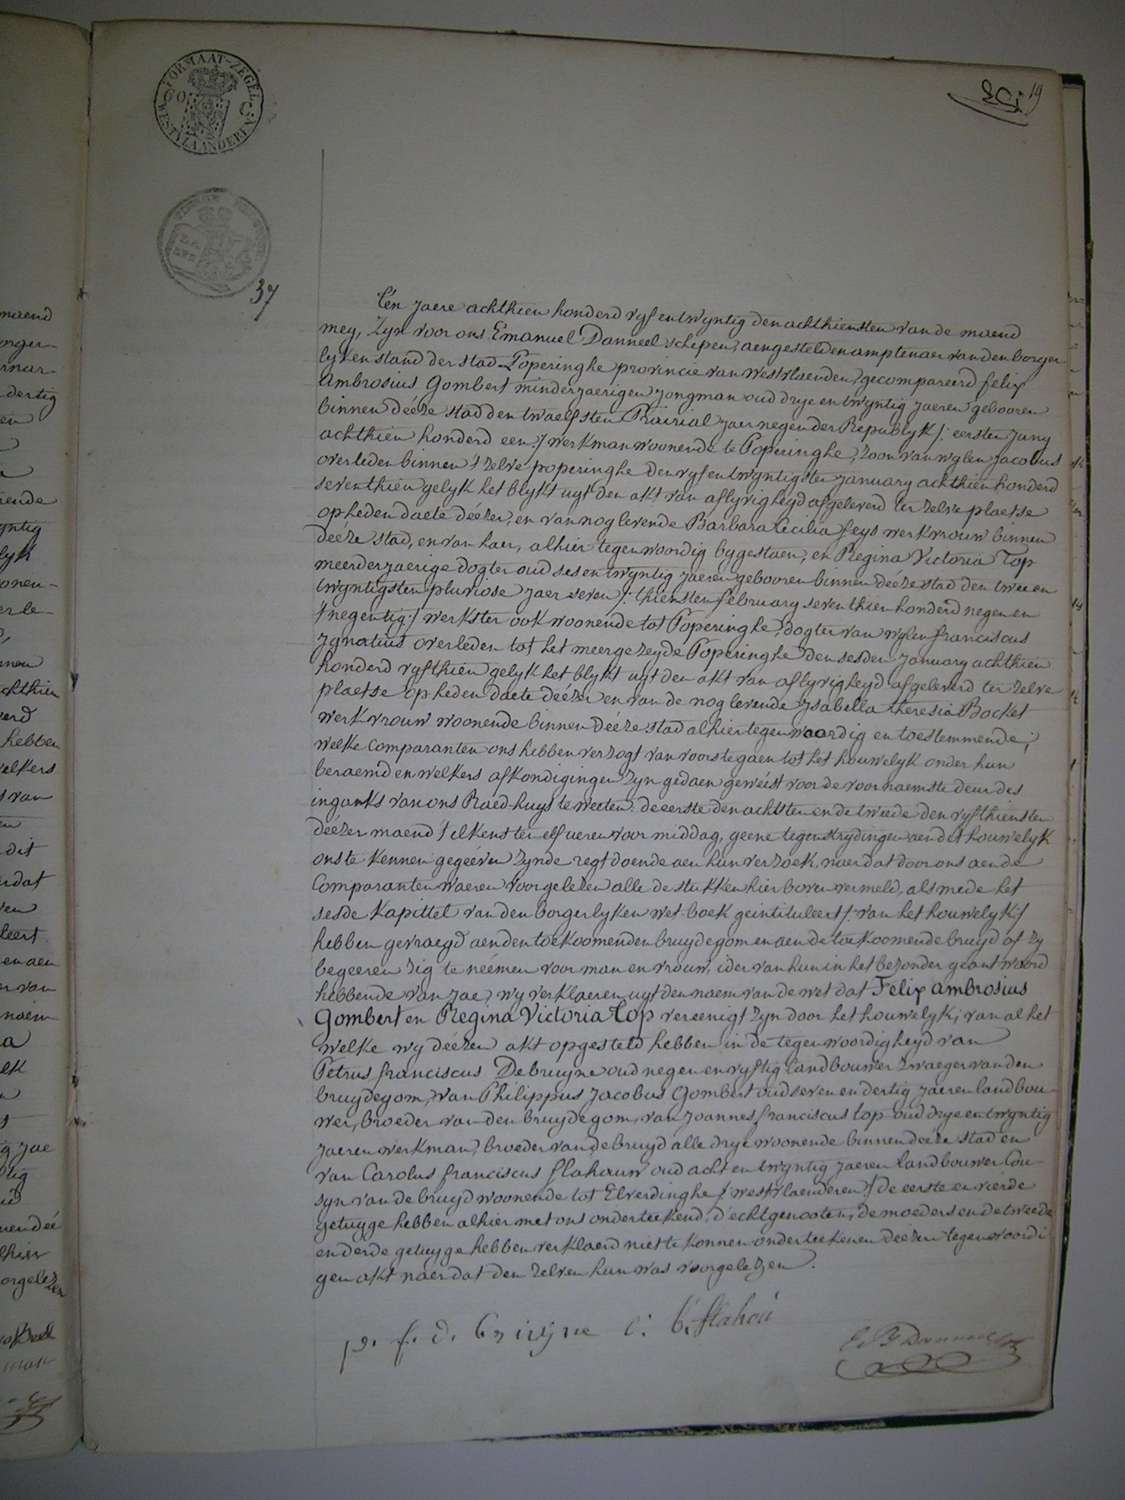 FORMAAT-ZEGEL
WESTVLAANDEREN
19
37
Één jaere achthien honderd vyf en twyntig den achthiensten van de maend
mey, Zyn voor ons Emanuel Danneel schepen, aengestelden amptenaer van den borger
lyken stand der stad Poperinghe provincie van Westvlaenden, gecompareerd felix
Ambrosius Gombert minderjaerigen jongman oud drye en twyntig jaeren gebooren
binnen déeze stad den twaelfsten Prairial jaer negen der Republyk /: eersten juny
achthien honderd een :/ werkman woonende te Poperinghe, zoon van wylen Jacobus
overleden binnen 't zelve poperinghe den vyf en twyntigsten january achthien honderd
seventhien gelyk het blykt uyt den akt van aflyvigheyd afgeleverd ter zelve plaetse
op heden daete déezer, en van nog levende Barbara Cecilia feys werkvrouw binnen
déeze stad, en van haer, alhier tegenwoordig bygestaen, en Regina Victoria Top
meerderjaerige dogter oud ses en twyntig jaeren gebooren binnen deeze stad den twee en
twyntigsten pluviose jaer seven /: thiensten february seventhien honderd negen en
't negentig :/ werkster ook woonende tot Poperinghe, dogter van wylen franciscus
Ignatius overleden tot het meergezeyde Poperinghe den sesden january achthien
honderd vyfthien gelyk het blykt uyt den akt van aflyvigheyd afgeleverd ter zelve
plaetse op heden daete déezer en van de nog levende Isabella theresia Bocket
werkvrouw woonende binnen deeze stad alhier tegenwoordig en toestemmende;
welke comparanten ons hebben verzogt van voorstegaen tot het houwelyk onder hun
beraemd en welkers afkondigingen zyn gedaen geweést voor de voornaemste deur des
inganks van ons Raedhuys te weeten: de eerste den achtsten en de tweede den vyfthiensten
déézer maend t'elkens ten elf ueren voor middag, geene tegenstrydingen aen dit houwelyk
ons te kennen gegééven zynde regt doende aen hun verzoek, naer dat door ons aen de
Comparanten waeren voorgelezen alle de stukken hier boven vermeld, als mede het
sesde Kapittel van den borgerlyken wet-boek geintituleert /: van het houwelyk :/
hebben gevraegd aen den toekoomenden bruydegom en aen de toekoomende bruyd of zy
begeeren zig te néemen voor man en vrouw, ider van hun in het bezonder geantwoord
hebbende van jae, wy verklaeren uyt den naem van de wet dat Felix ambrosius
Gombert en Regina Victoria Top vereenigt zyn door het houwelyk, van al het
welke wy déézen akt opgesteld hebben in de tegenwoordigheyd van
Petrus franciscus Debruyne oud negen en vyftig landbouwer zwaeger van den
bruydegom, van Philippus Jacobus Gombert oud seven en dertig jaeren landbou-
wer, broeder van den bruydegom, van joannes franciscus top oud drye en twyntig
jaeren werkman, broeder van de bruyd alle drye woonende binnen déeze stad en
van Carolus franciscus flahauw oud acht en twyntig jaeren landbouwer Cou-
syn van de bruyd woonende tot Elverdinghe /: westvlaenderen :/ de eerste en vierde
getuyge hebben alhier met ons onderteekend, d'echtgenooten, de moeders en de tweede
en derde getuyge hebben verklaerd niet te konnen onderteekenen deezen tegenwoordi
gen akt naer dat den zelven hun was voorgelezen.
p. f. d. Bruyne C. f. flahou